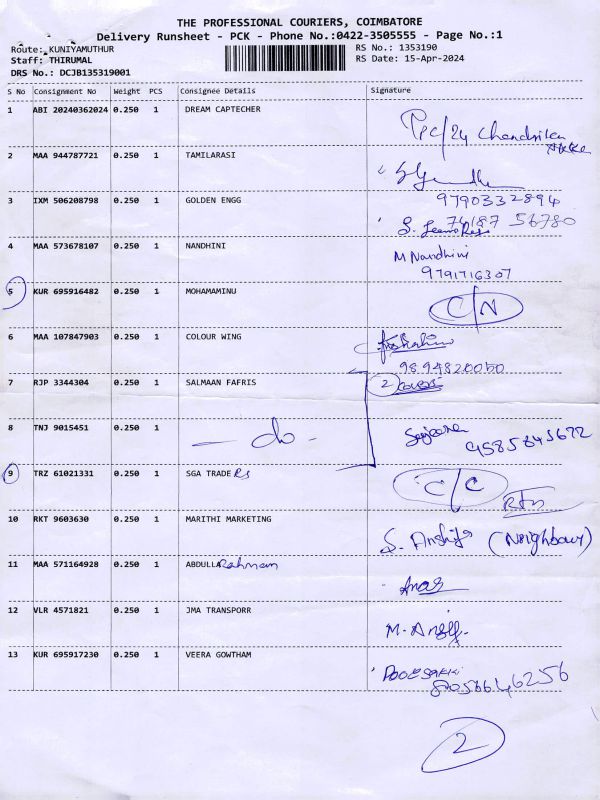 THE PROFESSIONAL COURIERS, COIMBATORE
Delivery Runsheet - PCK - Phone No.:0422-3505555 - Page No.:1
Route: KUNIYAMUTHUR RS No.: 1353190
Staff: THIRUMAL RS Date: 15-Apr-2024
DRS No.: DCJB135319001
S No Consignment No Weight PCS Consignee Details Signature
1 ABI 20240362024 0.250 1 DREAM CAPTECHER
2 MAA 944787721 0.250 1 TAMILARASI
9790332894
3 IXM 506208798 0.250 1 GOLDEN ENGG
74187 56780
4 MAA 573678107 0.250 1 NANDHINI M Nandhini
9791716307
5 KUR 695916482 0.250 1 MOHAMAMINU C/N
6 MAA 107847903 0.250 1 COLOUR WING
9894820050
7 RJP 3344304 0.250 1 SALMAAN FAFRIS 2 cover
8 TNJ 9015451 0.250 1 - do -
9585845672
9 TRZ 61021331 0.250 1 SGA TRADERS C/C
RTN
10 RKT 9603630 0.250 1 MARITHI MARKETING (Neighbour)
11 MAA 571164928 0.250 1 ABDULLA Rahman
Anas
12 VLR 4571821 0.250 1 JMA TRANSPORR
13 KUR 695917230 0.250 1 VEERA GOWTHAM
8056646256
2